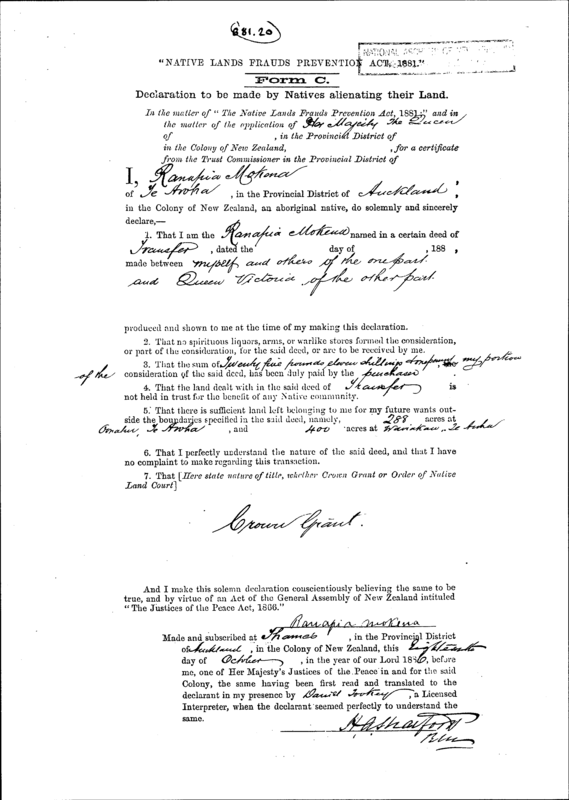 G81.20
NATIONAL
"NATIVE LANDS FRAUDS PREVENTION ACT, 1881."
FORM C.
Declaration to be made by Natives alienating their Land.
In the matter of "The Native Lands Frauds Prevention Act, 1881;" and in
the matter of the application of Her Majesty The Queen
of , in the Provincial District of
in the Colony of New Zealand, , for a certificate
from the Trust Commissioner in the Provincial District of
I, Ranapia Mokena ,
of Te Aroha , in the Provincial District of Auckland ,
in the Colony of New Zealand, an aboriginal native, do solemnly and sincerely
declare,—
1. That I am the Ranapia Mokena named in a certain deed of
Transfer , dated the day of , 188 ,
made between myself and others of the one part
and Queen Victoria of the other part.
produced and shown to me at the time of my making this declaration.
2. That no spirituous liquors, arms, or warlike stores formed the consideration,
or part of the consideration, for the said deed, or are to be received by me.
3. That the sum of Twenty five pounds eleven shillings my portion
of the consideration of the said deed, has been duly paid by the purchaser
4. That the land dealt with in the said deed of Transfer is
not held in trust for the benefit of any Native community.
5. That there is sufficient land left belonging to me for my future wants out-
side the boundaries specified in the said deed, namely, 288 acres at
Omahu, Te Aroha , and 400 acres at Te Aroha
6. That I perfectly understand the nature of the said deed, and that I have
no complaint to make regarding this transaction.
7. That [Here state nature of title, whether Crown Grant or Order of Native
Land Court]
Crown Grant.
And I make this solemn declaration conscientiously believing the same to be
true, and by virtue of an Act of the General Assembly of New Zealand intituled
"The Justices of the Peace Act, 1866."
Ranapia mokena
Made and subscribed at Thames , in the Provincial District
of Auckland , in the Colony of New Zealand, this Eighteenth
day of October , in the year of our Lord 188 , before
me, one of Her Majesty's Justices of the Peace in and for the said
Colony, the same having been first read and translated to the
declarant in my presence by Daniel Tookey , a Licensed
Interpreter, when the declarant seemed perfectly to understand the
same.
H A Stratford
RM